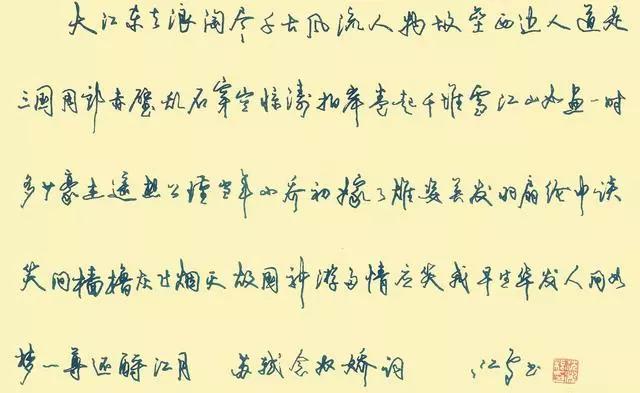 大江东去浪淘尽千古风流人物故垒西边人道是
三国周郎赤壁乱石穿空惊涛拍岸卷起千堆雪江山如画一时
多少豪杰遥想公瑾当年小乔初嫁了雄姿英发羽扇纶巾谈
笑间樯橹灰飞烟灭故国神游多情应笑我早生华发人间如
梦一尊还酹江月 苏轼念奴娇词 江雪书